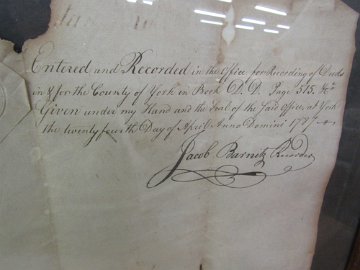 Entered and Recorded in the Office for Recording of Deeds
in & for the County of York in Book D.D. Page 515. &c
Given under my Hand and the Seal of the said Office at York
the twenty fourth Day of April Anno Domini
Jacob Barnitz Recorder